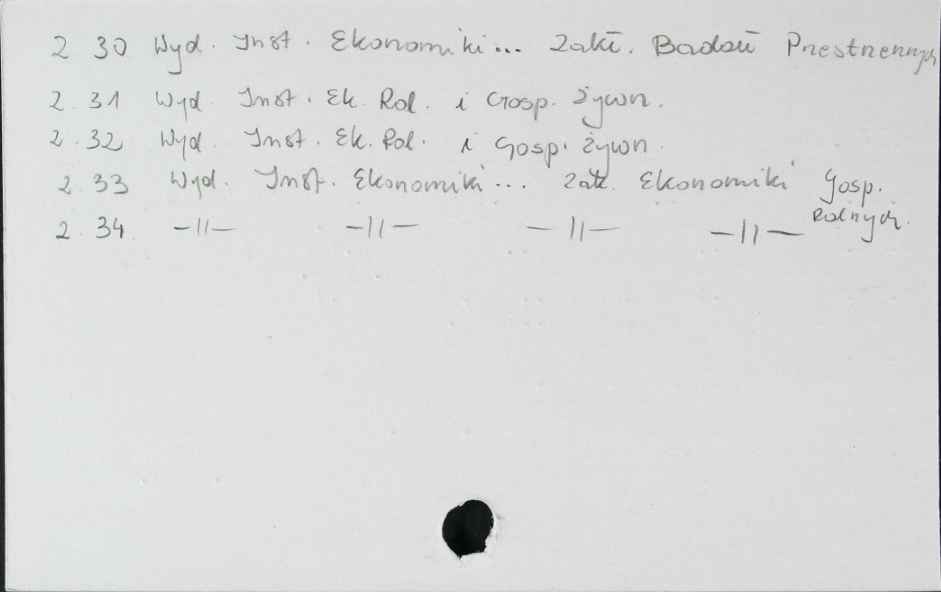 2 30 Wyd. Inst. Ekonomiki... Zakł. Badań Przestrzennych
2.31 Wyd. Inst. Ek. Rol. i Gosp. Żywn.
2.32 Wyd. Inst. Ek. Rol. i Gosp. Żywn.
2.33 Wyd. Inst. Ekonomiki... Zakł. Ekonomiki Gosp. Rolnych.
2.34 -||- -||- -||- -||-